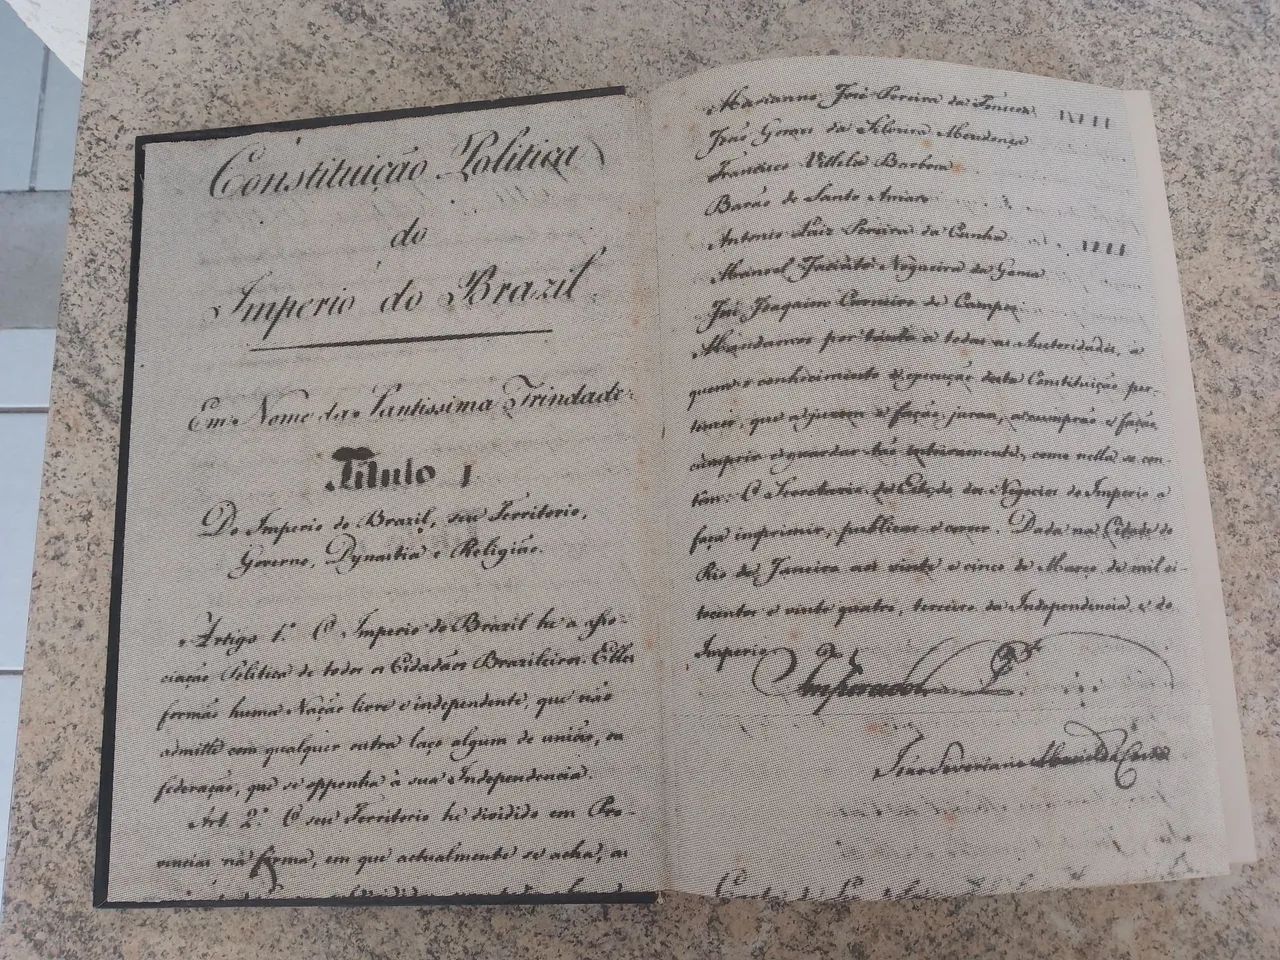 Constituição Politica
do
Imperio do Brazil
Em Nome da Santissima Trindade.
Titulo 1
Do Imperio do Brazil, seu Territorio,
Governo, Dynastia e Religião.
Artigo 1.º O Imperio do Brazil he a asso-
ciação Politica de todos os Cidadãos Brazileiros. Elles
formão huma Nação livre e independente, que não
admitte com qualquer outra laço algum de união, ou
federação, que se opponha à sua Independencia.
Art. 2.º O seu Territorio he dividido em Pro-
vincias na forma, em que actualmente se acha, as
Marianno José Pereira da Fonseca
João Gomes da Silveira Mendonça
Francisco Villela Barbosa
Barão de Santo Amaro
Antonio Luiz Pereira da Cunha
Manoel Jacinto Nogueira da Gama
José Joaquim Carneiro de Campos
Mandamos por tanto a todas as Autoridades, a
quem o conhecimento e execução desta Constituição per-
tencer, que a jurem e fação jurar, a cumprão e fação
cumprir e guardar tão inteiramente, como nella se con-
têm. O Secretario de Estado dos Negocios do Imperio a
faça imprimir, publicar e correr. Dada na Cidade do
Rio de Janeiro aos vinte e cinco de Março de mil oi-
tocentos e vinte quatro, terceiro da Independencia e do
Imperio
Imperador P.
João Severiano Maciel da Costa